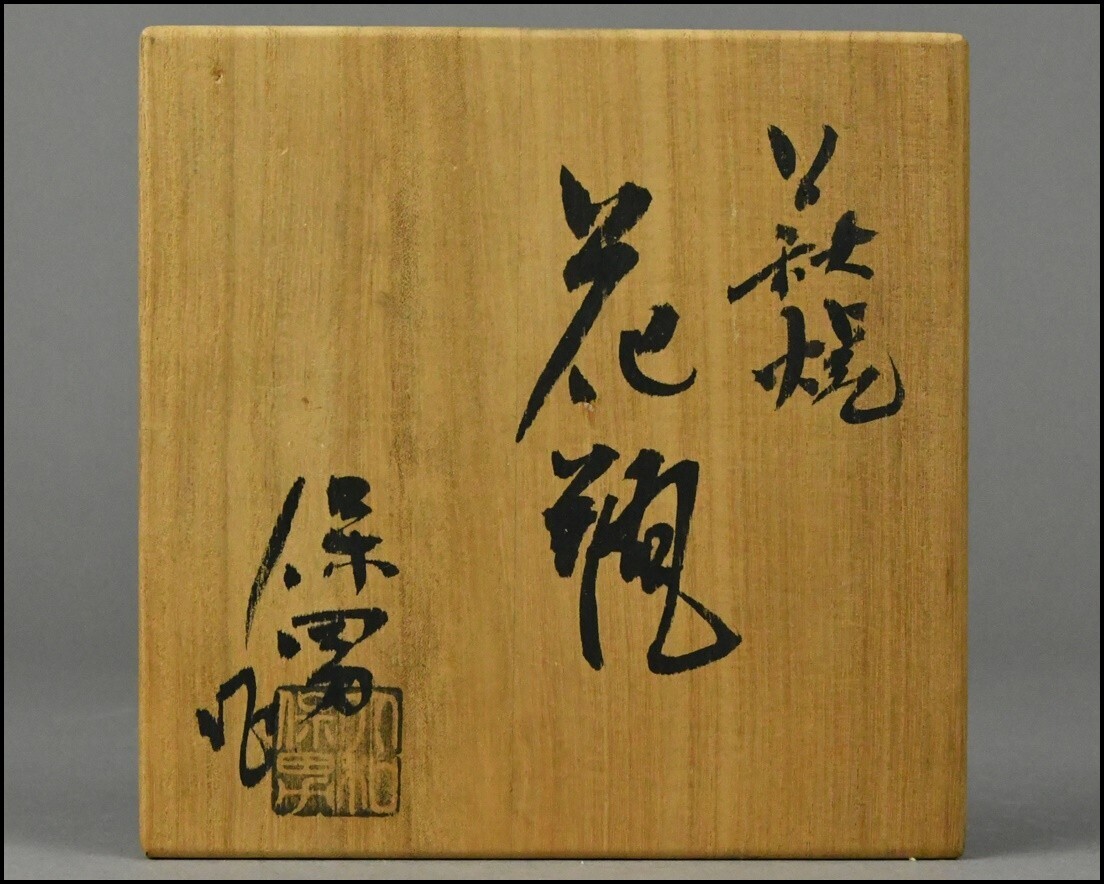 萩焼
花瓶
保男作
大和
保男